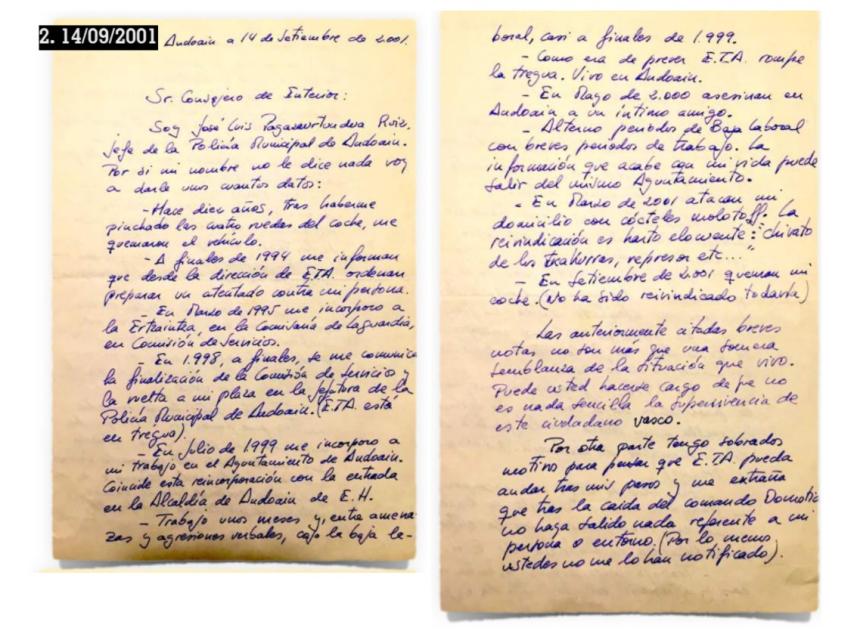 2. 14/09/2001
Andoain a 14 de Setiembre de 2001.
Sr. Consejero de Interior:
Soy José Luis Pagazaurtundua Ruiz,
jefe de la Policía Municipal de Andoain.
Por si mi nombre no le dice nada voy
a darle unos cuantos datos:
- Hace diez años, tras haberme
pinchado las cuatro ruedas del coche, me
quemaron el vehículo.
- A finales de 1994 me informan
que desde la dirección de E.T.A. ordenan
preparar un atentado contra mi persona.
- En Marzo de 1995 me incorporo a
la Ertzaintza, en la Comisaría de Laguardia,
en Comisión de Servicios.
- En 1.998, a finales, se me comunica
la finalización de la Comisión de servicios y
la vuelta a mi plaza en la jefatura de la
Policía Municipal de Andoain. (E.T.A. está
en tregua).
- En Julio de 1999 me incorporo a
mi trabajo en el Ayuntamiento de Andoain.
Coincide esta reincorporación con la entrada
en la Alcaldía de Andoain de E.H.
- Trabajo unos meses y, entre amena-
zas y agresiones verbales, cojo la baja la-
boral, casi a finales de 1.999.
- Como era de prever E.T.A. rompe
la tregua. Vivo en Andoain.
- En Mayo de 2.000 asesinan en
Andoain a un íntimo amigo.
- Alterno periodos de Baja laboral
con breves periodos de trabajo. La
información que acabe con mi vida puede
salir del mismo Ayuntamiento.
- En Marzo de 2001 atacan mi
domicilio con cócteles molotoff. La
reivindicación es harto elocuente: "chivato
de los txakurras, represor etc..."
- En Setiembre de 2.001 queman mi
coche. (No ha sido reivindicado todavía)
Las anteriormente citadas breves
notas no son más que una somera
semblanza de la situación que vivo.
Puede usted hacerse cargo de que no
es nada sencilla la supervivencia de
este ciudadano vasco.
Por otra parte tengo sobrados
motivos para pensar que E.T.A. pueda
andar tras mis pasos y me extraña
que tras la caída del comando Donosti
no haya salido nada referente a mi
persona o entorno. (Por lo menos
ustedes no me lo han notificado).